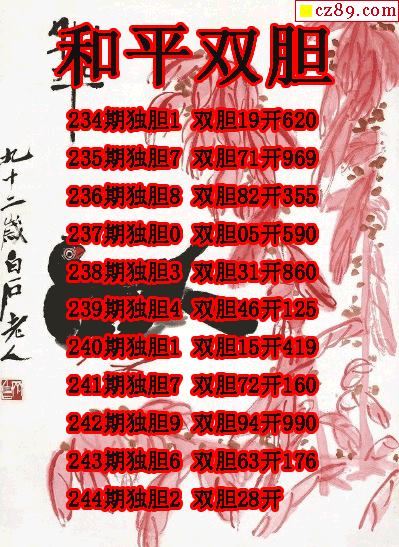 cz89.com
和平双胆
234期独胆1 双胆19开620
235期独胆7 双胆71开969
236期独胆8 双胆82开355
237期独胆0 双胆05开590
238期独胆3 双胆31开860
239期独胆4 双胆46开125
240期独胆1 双胆15开419
241期独胆7 双胆72开160
242期独胆9 双胆94开990
243期独胆6 双胆63开176
244期独胆2 双胆28开
九十二岁白石老人